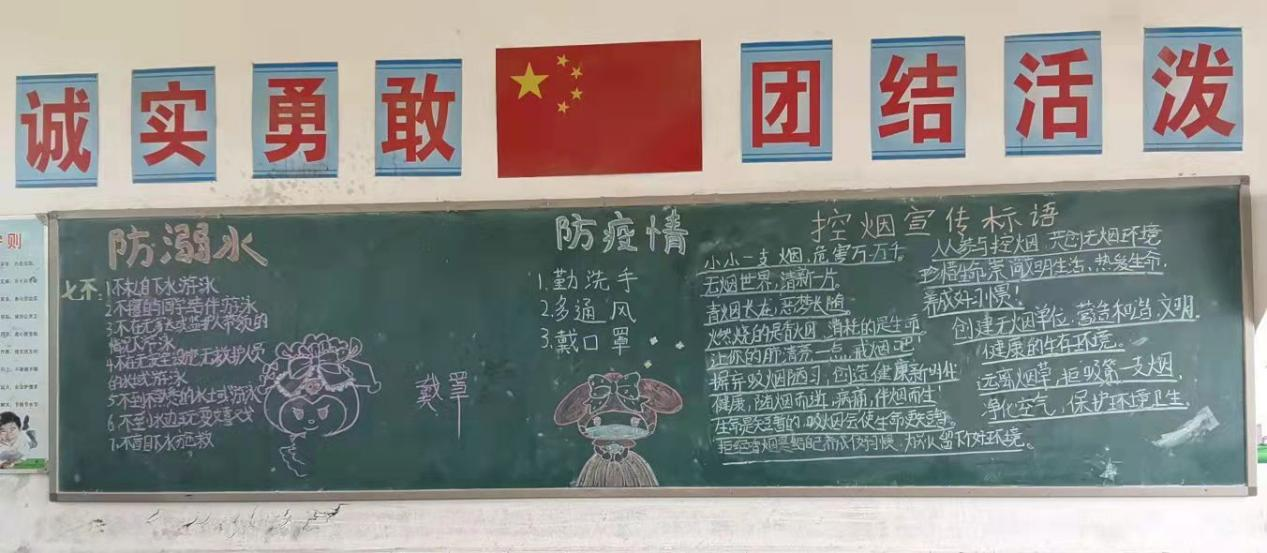 诚实勇敢
团结活泼
则
防溺水
七不:
1.不私自下水游泳
2.不擅自同学结伴游泳
3.不在无家长或监护人带领的
情况下游泳
4.不在无安全设施 无救护人员
的水域游泳
5.不到不熟悉的水域游泳
6.不到水边玩耍嬉戏
7.不盲目下水施救
戴罩
防疫情
1.勤洗手
2.多通风
3.戴口罩
控烟宣传标语
小小一支烟,危害万万千。
无烟世界,清新一片。
青烟长在,恶梦长随。
燃烧的是香烟,消耗的是生命
让你的肺清劳一点,戒烟吧
摒弃吸烟陋习,创造健康新时代
健康,随烟而逝,病痛,伴烟而生!
生命是短暂的,吸烟会使生命更短暂。
人人参与控烟,共创无烟环境
珍惜生命,崇尚文明生活、热爱生命,
养成好习惯!
创建无烟单位,营造和谐、文明、
健康的生存环境。
远离烟草,拒吸第一支烟,
净化空气,保护环境卫生.